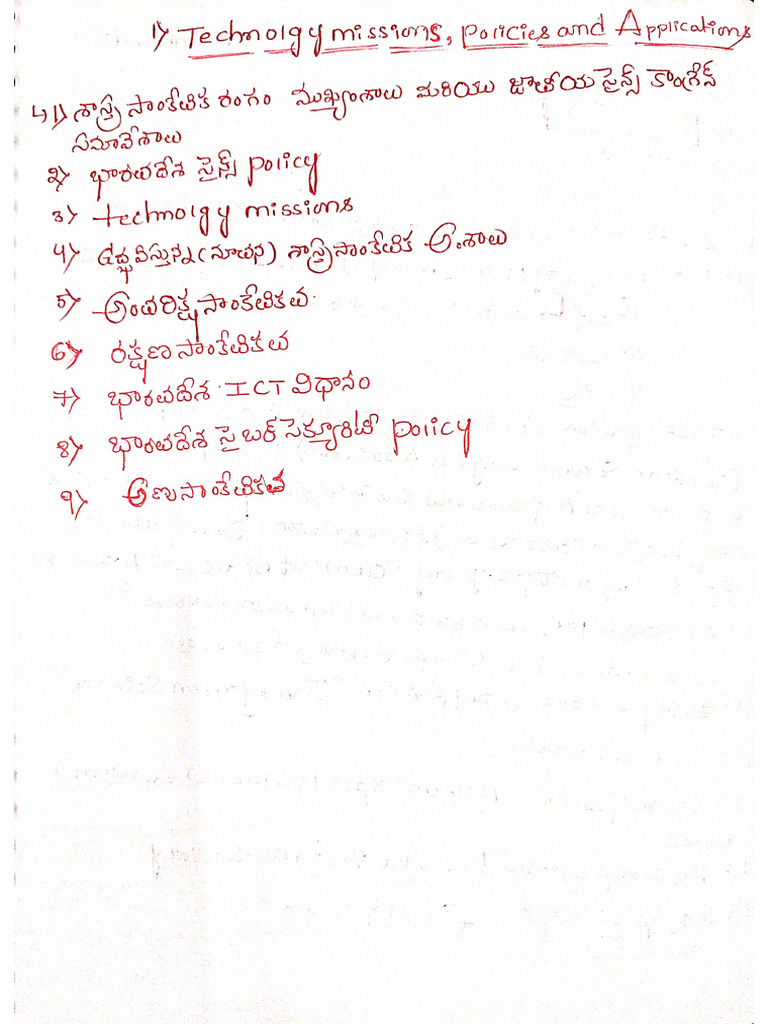 1) Technolgy missions, policies and Applications
↳ 1) శాస్త్ర సాంకేతిక రంగం ముఖ్యంశాలు మరియు జాతీయ సైన్స్ కాంగ్రేస్
సమావేశాలు
2) భారతదేశ సైన్స్ policy
3) technolgy missions
4) ఉద్భవిస్తున్న (నూతన) శాస్త్రసాంకేతిక అంశాలు
5) అంతరిక్ష సాంకేతికత
6) రక్షణ సాంకేతికత
7) భారతదేశ ICT విధానం
8) భారతదేశ సైబర్ సెక్యూరిటీ policy
9) అణు సాంకేతికత